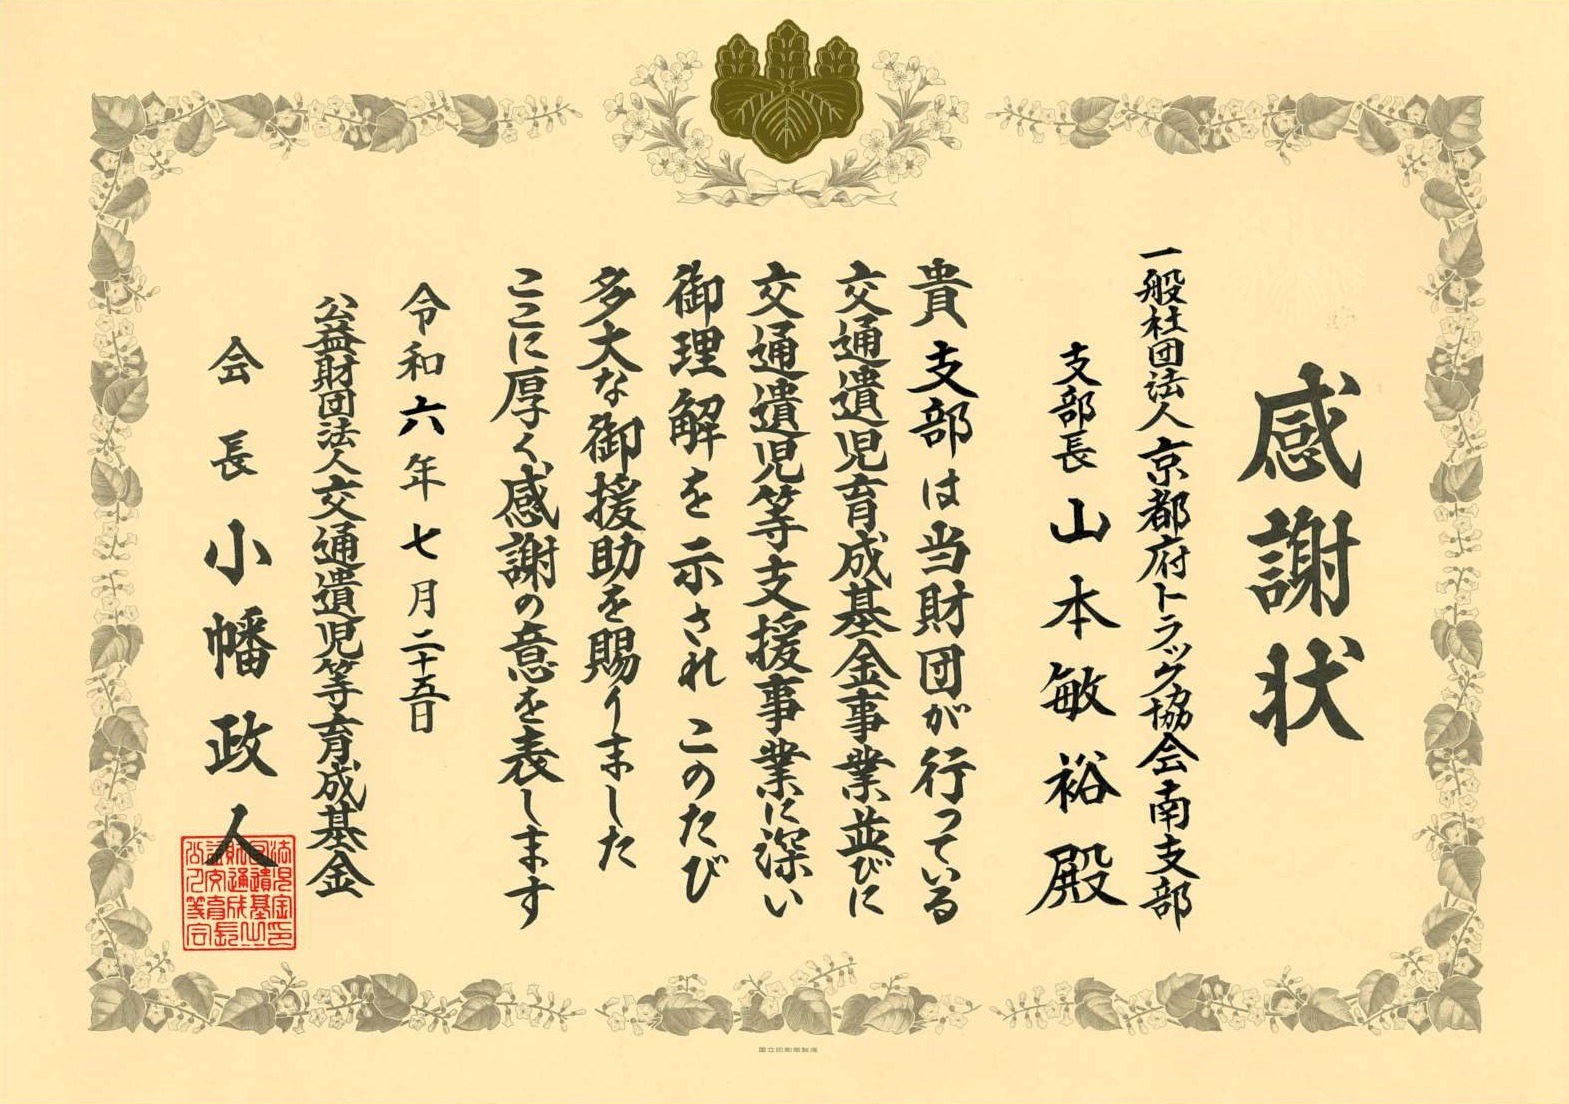 感謝状
一般社団法人京都府トラック協会南支部
支部長 山本敏裕殿
貴支部は当財団が行っている
交通遺児育成基金事業並びに
交通遺児等支援事業に深い
御理解を示され このたび
多大な御援助を賜りました
ここに厚く感謝の意を表します
令和六年七月二十五日
公益財団法人交通遺児等育成基金
会長 小幡政人
国立印刷局製造